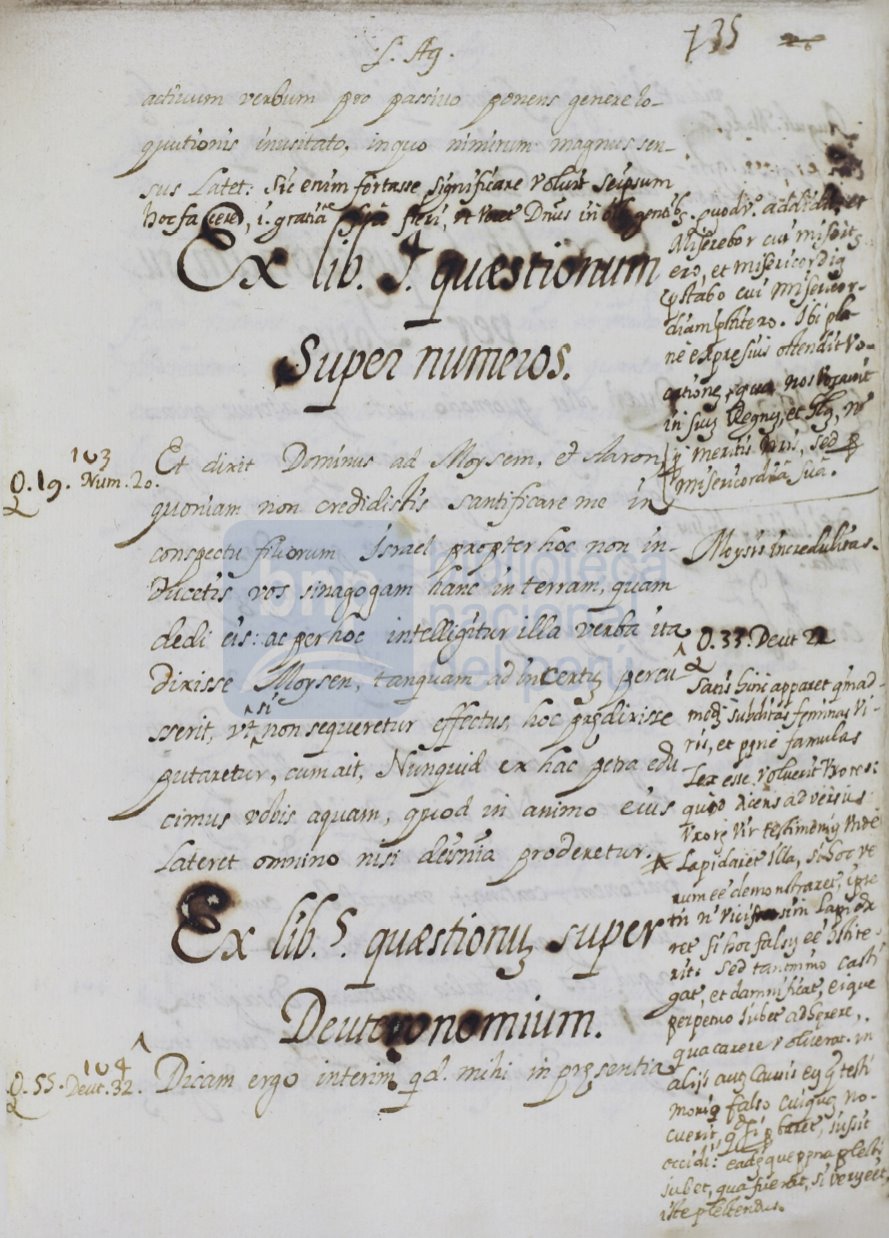 S. Ag.
135
actiuum verbum pro passiuo ponens genere lo-
quutionis inusitato, in quo nimirum magnus sen-
sus Latet: Sic enim fortasse significare voluit seipsum
hoc facere, i. gratiā fieri, vt vocet Dnus in gentib9.
Ex lib. 4. quæstionum
Super numeros.
103
Q. 19. Num. 20.
Et dixit Dominus ad Moysem, et Aaron
quoniam non credidistis santificare me in
conspectu filiorum Israel propter hoc non in-
ducetis vos sinagogam hanc in terram, quam
dedi eis: ac per hoc intelligitur illa verba ita
dixisse Moysen, tanquam ad incertuȝ percu
sserit, vt si non sequeretur effectus, hoc prędixisse
putaretur, cum ait, Nunquid ex hac petra edu
cimus vobis aquam, quod in animo eius
Lateret omnino nisi proderetur.
Ex lib. 5. quæstionuȝ super
Deuteronomium.
104
Q. 55. Deut. 32.
Dicam ergo interim qd. mihi in pręsentia
quod v°. addidit, et
Miserebor cui
ero, et misericordiā
pstabo cui misericor-
diam pstitero. Ibi pla
ne expresius ostendit vo-
cationeȝ, qua nos vocauit
in suuȝ Regnuȝ, et
meritis sed p
misericordiā sua.
Moysis incredulitas.
Q. 33. Deut 22
Satis hinc apparet qmad-
modȝ subditas feminas vi-
ris, et pęne famulas
Lex esse voluerit Vxores:
quod dicens aduersus
Vxorē vir testimoniuȝ vnde
Lapidaret illa, si hoc ve
rum eē demonstraret, ipse
tn n vicissim Lapida
ret si hoc falsuȝ eē
rit: Sed tantnimo casti
gat, et damnificat, eique
perpetuo iubet adherere,
qua carere voluerat. in
alijs autȝ causis eū q testi
monio falso cuiquaȝ no-
cuerit, iussit
occidi: eadē que pena plecti
iubet, qua fuerat, si verū eēt,
iste plectendus.
bnp
biblioteca
nacional
del perú